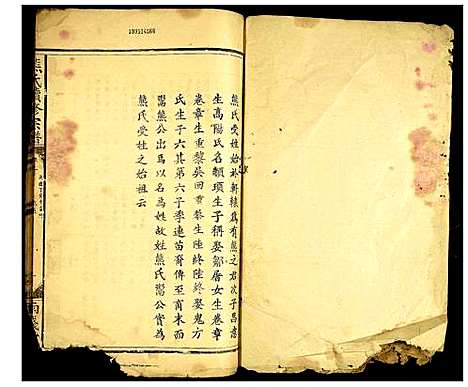 熊氏受姓始於軒轅爲有熊之君次子昌意
生高陽氏名顓頊生子稱娶鄒屠女生卷章
卷章生重黎吳回重黎生陸終陸終娶鬼方
氏生子六其第六子季連苗裔俾至商末而
鬻熊公出焉以名爲姓故姓熊氏鬻公實爲
熊氏受姓之始祖云
熊氏續修宗譜